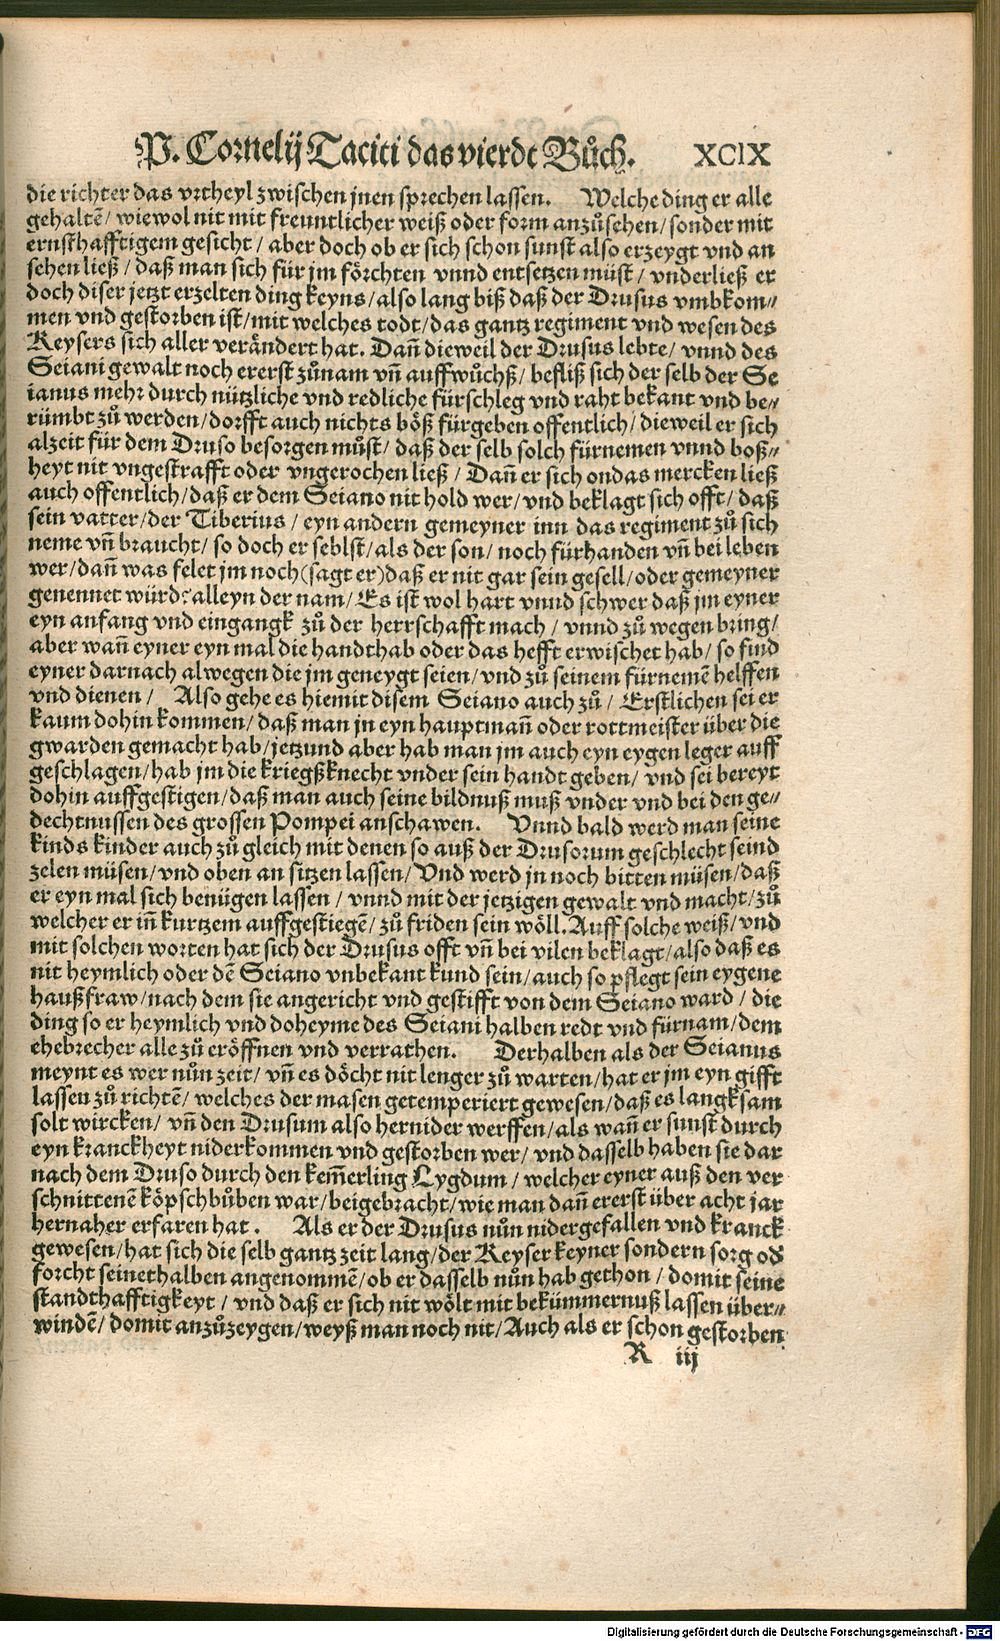 P. Cornelij Taciti das vierdt Bůch. XCIX
die richter das vrtheyl zwischen jnen sprechen lassen. Welche ding er alle
gehaltẽ / wiewol nit mit freuntlicher weiß oder form anzůsehen / sonder mit
ernsthafftigem gesicht / aber doch ob er sich schon sunst also erzeygt vnd an
sehen ließ / daß man sich für jm förchten vnnd entsetzen müst / vnderließ er
doch diser jetzt erzelten ding keyns / also lang biß daß der Drusus vmbkom⸗
men vnd gestorben ist / mit welches todt / das gantz regiment vnd wesen des
Keysers sich aller verändert hat. Dañ dieweil der Drusus lebte / vnnd des
Seiani gewalt noch ererst zůnam vñ auffwůchß / befliß sich der selb der Se
ianus mehr durch nützliche vnd redliche fürschleg vnd raht bekant vnd be⸗
rümbt zů werden / dorfft auch nichts böß fürgeben offentlich / dieweil er sich
alzeit für dem Druso besorgen můst / daß der selb solch fürnemen vnnd boß⸗
heyt nit vngestrafft oder vngerochen ließ / Dañ er sich ondas mercken ließ
auch offentlich / daß er dem Seiano nit hold wer / vnd beklagt sich offt / daß
sein vatter / der Tiberius / eyn andern gemeyner inn das regiment zů sich
neme vñ braucht / so doch er seblst / als der son / noch fürhanden vñ bei leben
wer / dañ was felet jm noch (sagt er) daß er nit gar sein gesell / oder gemeyner
genennet würd? alleyn der nam / Es ist wol hart vnnd schwer daß jm eyner
eyn anfang vnd eingangk zů der herrschafft mach / vnnd zů wegen bring /
aber wañ eyner eyn mal die handthab oder das hefft erwischet hab / so find
eyner darnach alwegen die jm geneygt seien / vnd zů seinem fürnemẽ helffen
vnd dienen / Also gehe es hiemit disem Seiano auch zů / Erstlichen sei er
kaum dohin kommen / daß man jn eyn hauptmañ oder rottmeister über die
gwarden gemacht hab / jetzund aber hab man jm auch eyn eygen leger auff
geschlagen / hab jm die kriegßknecht vnder sein handt geben / vnd sei bereyt
dohin auffgestigen / daß man auch seine bildnuß muß vnder vnd bei den ge⸗
dechtnussen des grossen Pompei anschawen. Vnnd bald werd man seine
kinds kinder auch zů gleich mit denen so auß der Drusorum geschlecht seind
zelen müsen / vnd oben an sitzen lassen / Vnd werd jn noch bitten müsen / daß
er eyn mal sich benügen lassen / vnnd mit der jetzigen gewalt vnd macht / zů
welcher er iñ kurtzem auffgestiegẽ / zů friden sein wöll. Auff solche weiß / vnd
mit solchen worten hat sich der Drusus offt vñ bei vilen beklagt / also daß es
nit heymlich oder dẽ Seiano vnbekant kund sein / auch so pflegt sein eygene
haußfraw / nach dem sie angericht vnd gestifft von dem Seiano ward / die
ding so er heymlich vnd doheyme des Seiani halben redt vnd fürnam / dem
ehebrecher alle zů eröffnen vnd verrathen. Derhalben als der Seianus
meynt es wer nůn zeit / vñ es döcht nit lenger zů warten / hat er jm eyn gifft
lassen zů richtẽ / welches der masen getemperiert gewesen / daß es langksam
solt wircken / vñ den Drusum also hernider werffen / als wañ er sunst durch
eyn kranckheyt niderkommen vnd gestorben wer / vnd dasselb haben sie dar
nach dem Druso durch den kem̃erling Lygdum / welcher eyner auß den ver
schnittenẽ köpschbůben war / beigebracht / wie man dañ ererst über acht jar
hernaher erfaren hat. Als er der Drusus nůn nidergefallen vnd kranck
gewesen / hat sich die selb gantz zeit lang / der Keyser keyner sondern sorg od̃
forcht seinethalben angenommẽ / ob er dasselb nůn hab gethon / domit seine
standthafftigkeyt / vnd daß er sich nit wölt mit bekümmernuß lassen über⸗
windẽ / domit anzůzeygen / weyß man noch nit / Auch als er schon gestorben
R iij
Digitalisierung gefördert durch die Deutsche Forschungsgemeinschaft - DFG